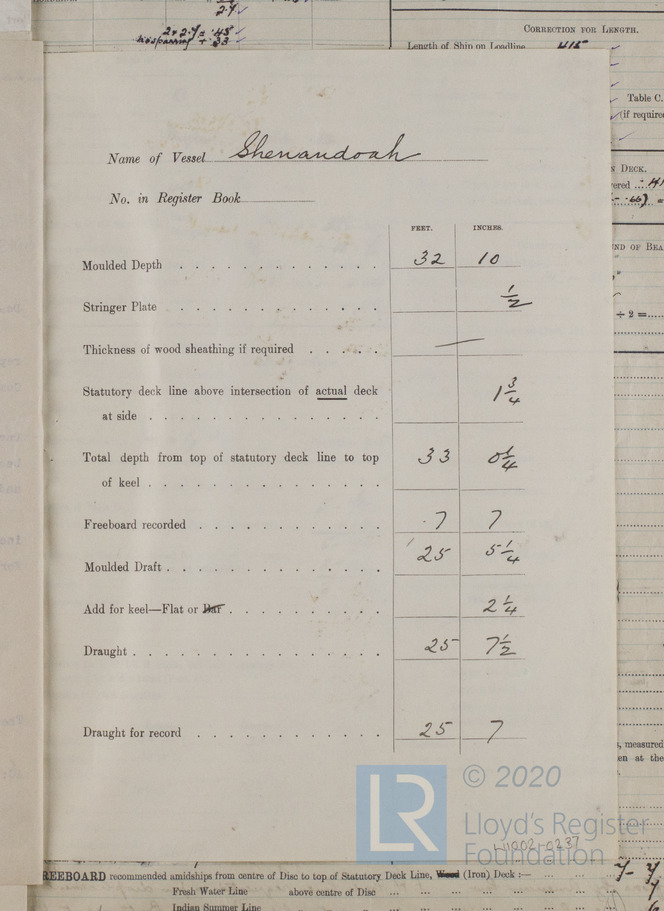 2.4
2 × 2.4 = .48
+ .33
CORRECTION FOR LENGTH.
Length of Ship on Loadline 415
Table C.
(if require
DECK.
ered
ND OF BEA
÷ 2 =
Name of Vessel Shenandoah
No. in Register Book
FEET. INCHES.
Moulded Depth 32 10
Stringer Plate 1/2
Thickness of wood sheathing if required —
Statutory deck line above intersection of actual deck
at side 1 3/4
Total depth from top of statutory deck line to top
of keel 33 0 1/4
Freeboard recorded 7 7
Moulded Draft 25 5 1/4
Add for keel—Flat or Bar 2 1/4
Draught 25 7 1/2
Draught for record 25 7
, measured
en at the
LR © 2020
Lloyd's Register
Foundation
REEBOARD recommended amidships from centre of Disc to top of Statutory Deck Line, Wood (Iron) Deck :—
Fresh Water Line above centre of Disc
Indian Summer Line